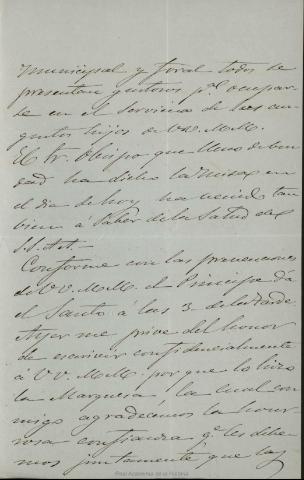 municipal y foral todos se
presentan gustosos pª ocupar-
se en el servicio de los au-
gustos hijos de VV. M.M.
El Sr. Obispo que lleno de bon
dad ha dicho la Misa en
el dia de hoy ha venido tam
bien á saber de la salud de
S.S. A.A.
Conforme con las prevenciones
de V.V. M.M. el Principe dá
el Santo á las 3 de la tarde
Ayer me privé del honor
de escrivir confidencialmente
á V.V. M.M. por que lo hizo
la Marquesa, la cual con
migo agradecemos la honr
rosa confianza q.e les debe
mos juntamente que las
Real Academia de la Historia